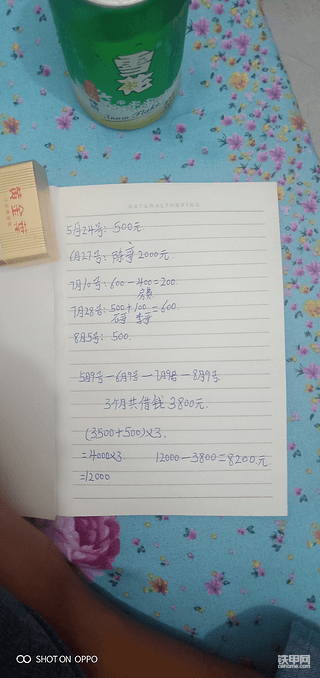 雪花
Snow Flake
黄金叶
5月24号: 500元.
6月27号: 陈宇2000元.
7月10号: 600-400=200.
房费
7月28号: 500+100=600.
8月5号: 500.
5月9号一6月9号一7月9号一8月9号.
3个月共借钱3800元.
(3500+500)×3.
=4000×3. 12000-3800=8200元
=12000
SHOT ON OPPO
铁甲网
cehome.com